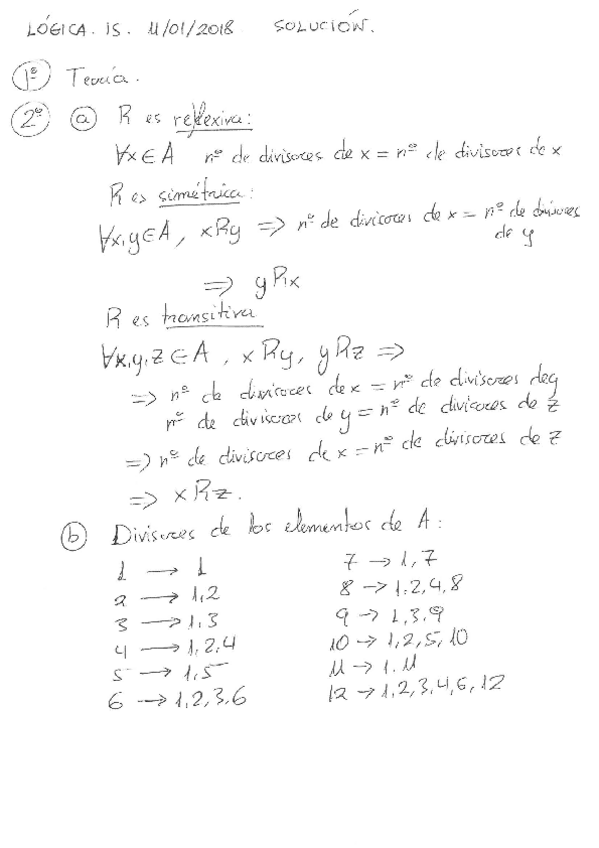 LÓGICA. IS. 11/01/2018 SOLUCIÓN.
1º Teoría.
2º a R es reflexiva:
∀x∈A nº de divisores de x = nº de divisores de x
R es simétrica:
∀x,y∈A, xRy ⇒ nº de divisores de x = nº de divisores
de y
⇒ yRx
R es transitiva
∀x,y,z∈A, xRy, yRz ⇒
⇒ nº de divisores de x = nº de divisores de y
nº de divisores de y = nº de divisores de z
⇒ nº de divisores de x = nº de divisores de z
⇒ xRz.
b Divisores de los elementos de A:
1 → 1
2 → 1,2
3 → 1,3
4 → 1,2,4
5 → 1,5
6 → 1,2,3,6
7 → 1,7
8 → 1,2,4,8
9 → 1,3,9
10 → 1,2,5,10
11 → 1.11
12 → 1,2,3,4,6,12